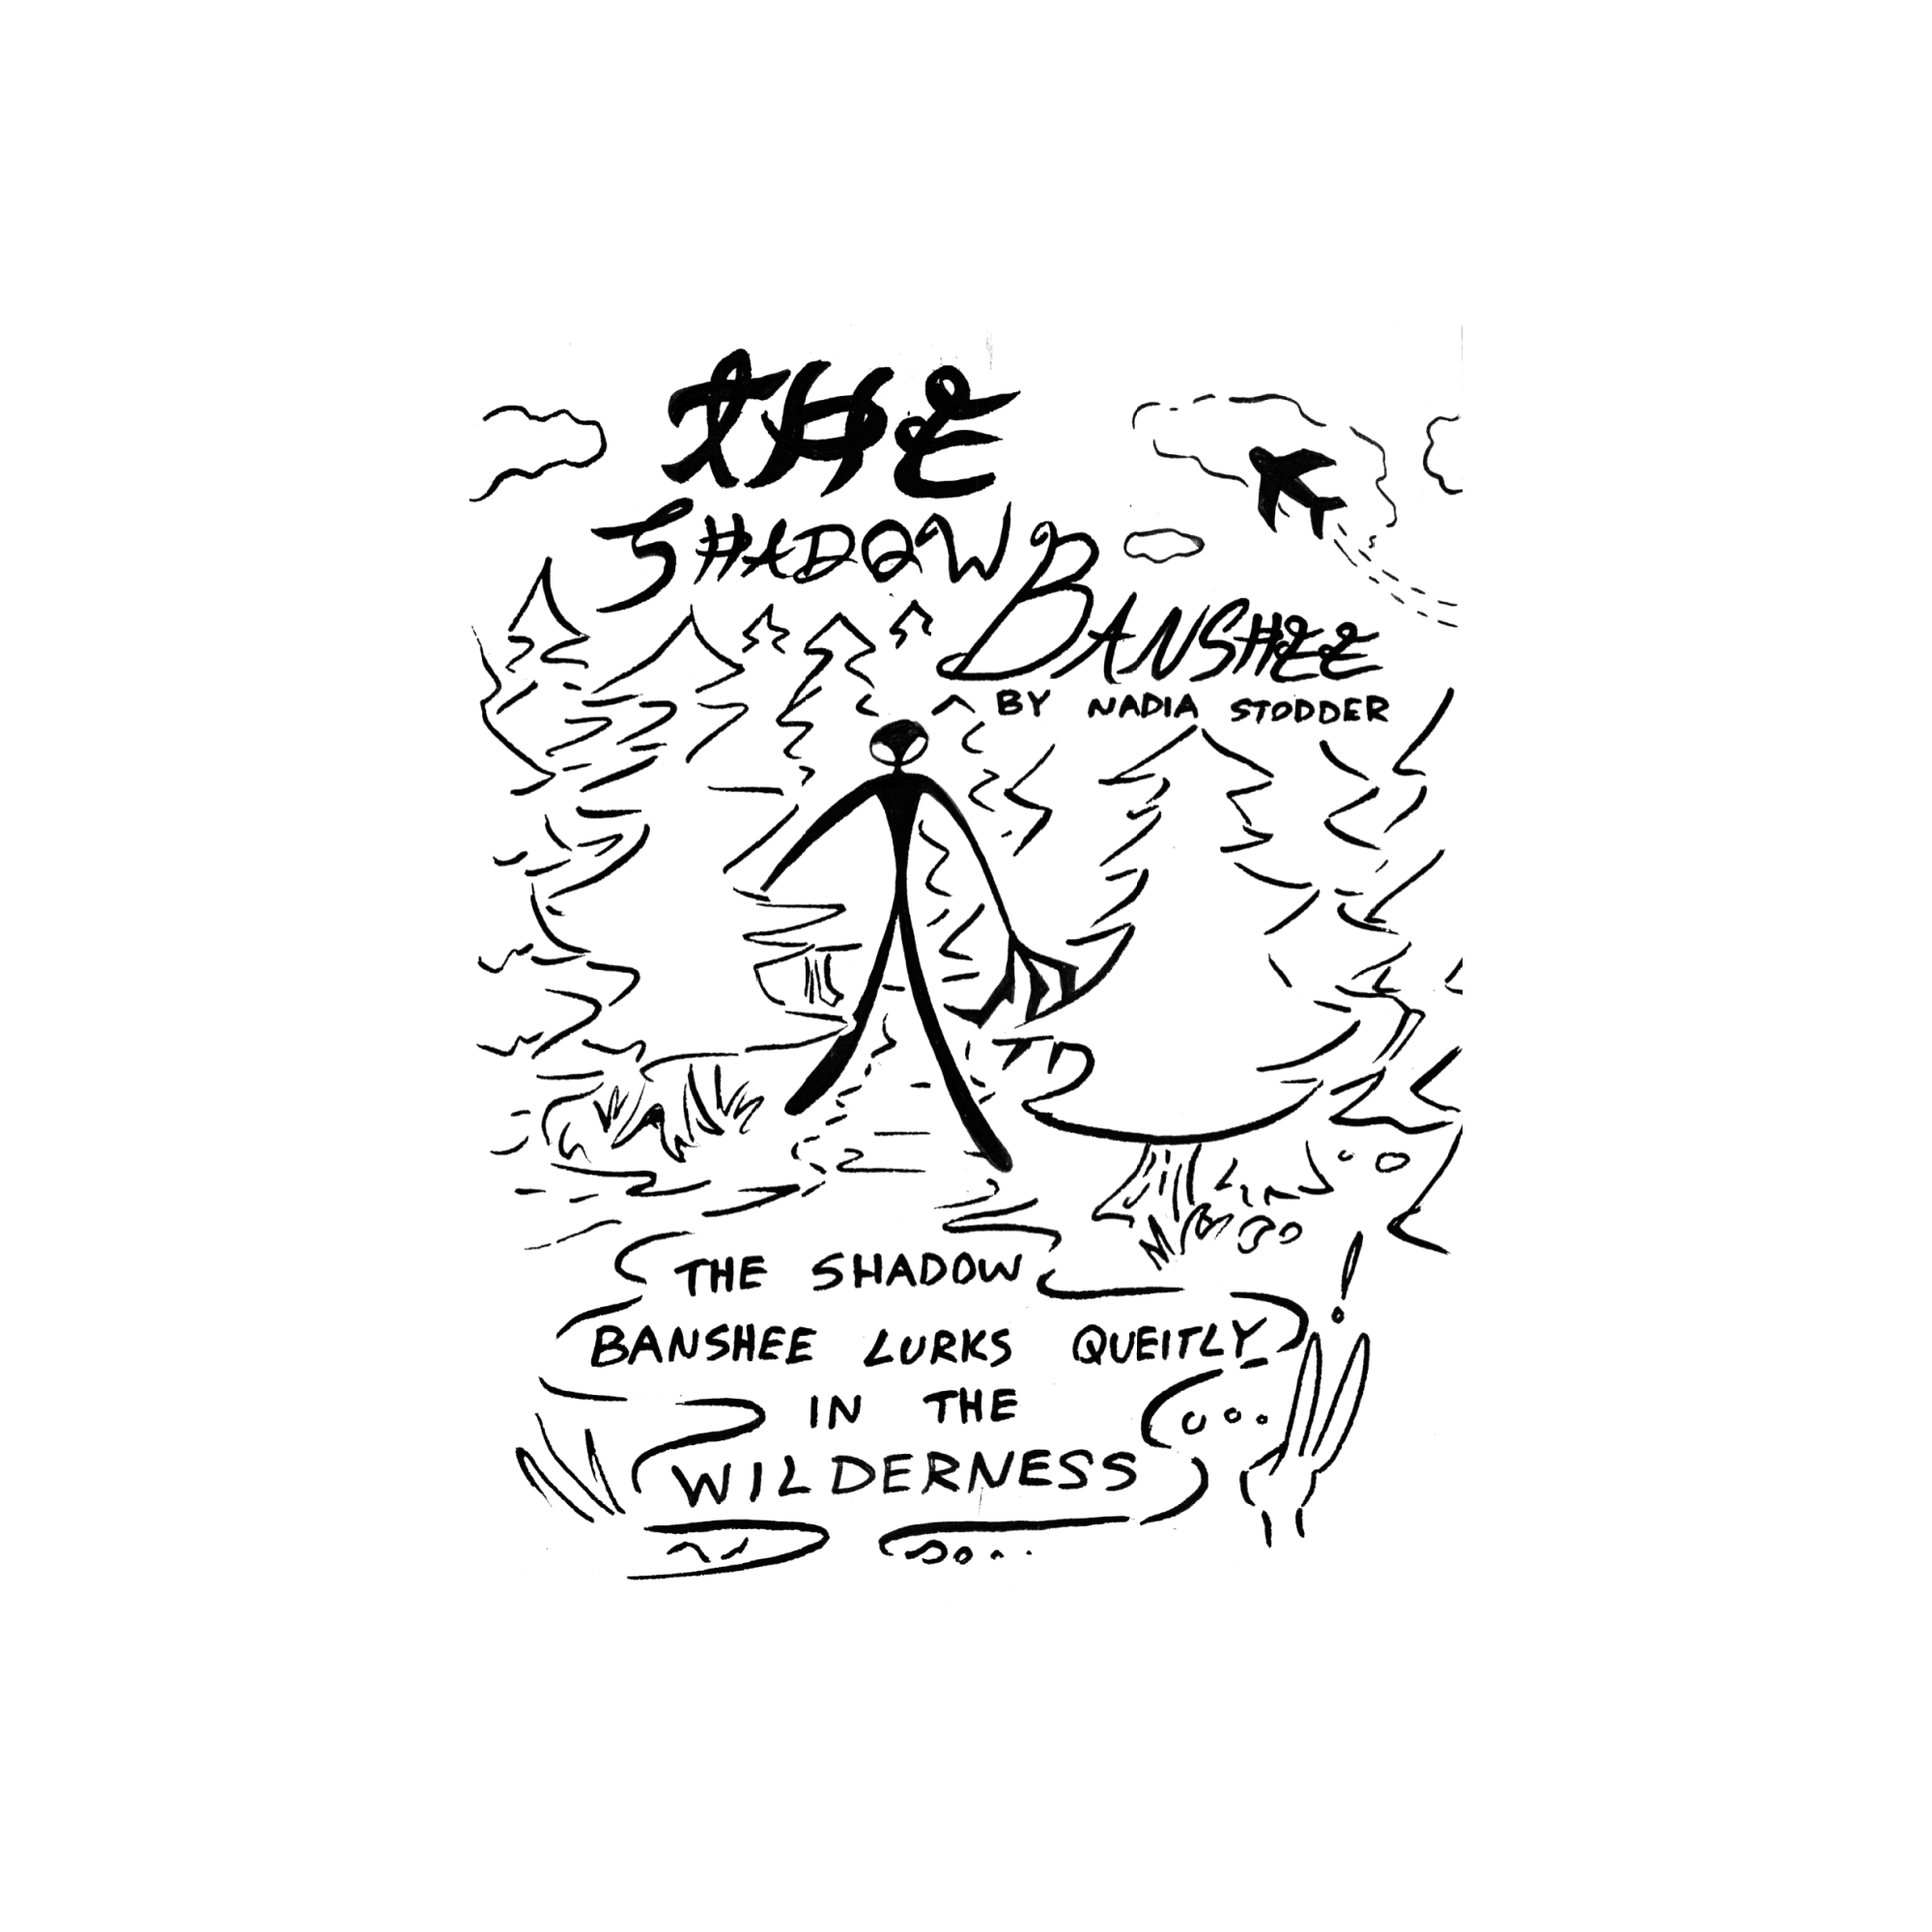 THE
SHADOW
BANSHEE
BY NADIA STODDER
THE SHADOW
BANSHEE LURKS QUEITLY
IN THE
WILDERNESS